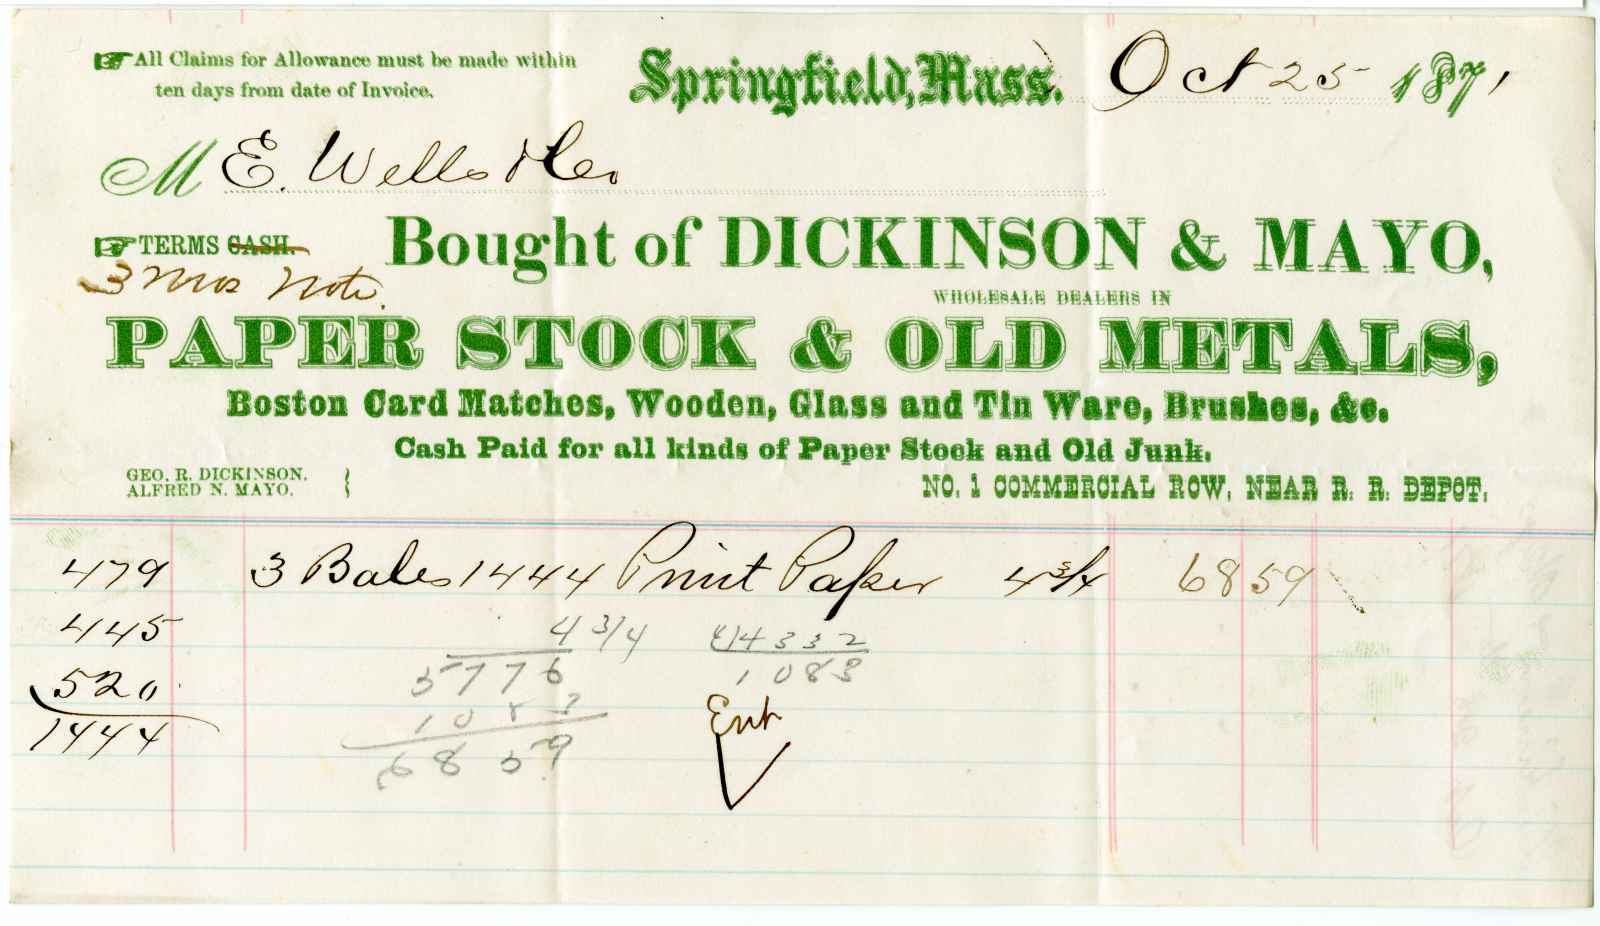 All Claims for Allowance must be made within
ten days from date of Invoice.
Springfield, Mass. Oct 25 1871
M E. Wells & Co
TERMS CASH.
3 mos Note.
Bought of DICKINSON & MAYO,
WHOLESALE DEALERS IN
PAPER STOCK & OLD METALS,
Boston Card Matches, Wooden, Glass and Tin Ware, Brushes, &c.
Cash Paid for all kinds of Paper Stock and Old Junk.
GEO. R. DICKINSON.
ALFRED N. MAYO.
NO. 1 COMMERCIAL ROW, NEAR R. R. DEPOT.
479 3 Bales 1444 Print Paper 4 3/4 68 59
445
520
1444
4 3/4
5776
1083
6859
4)4332
1083
Ent